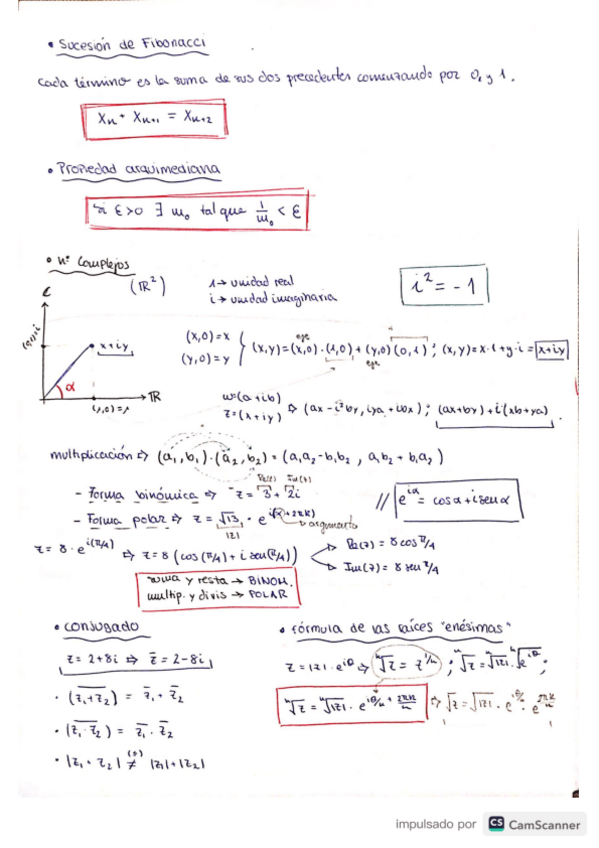 • Sucesión de Fibonacci
Cada término es la suma de sus dos precedentes comenzando por 0, y 1.
Xn + Xn+1 = Xn+2
• Propiedad arquimediana
si ε>0 ∃ m₀ tal que 1/m₀ < ε
• nº Complejos
(ℝ²)
1 → unidad real
i → unidad imaginaria
i² = -1
(x,0) = x
(y,0) = y
(x,y)=(x,0)·(1,0)+(y,0)(0,1); (x,y)=x·1+y·i = x+iy
eje
eje
x+iy
α
ℝ
w=(a+ib)
z=(x+iy) ⇒ (ax-i²by, iya+ibx); (ax+by)+i(xb+ya).
multiplicación ⇒ (a₁,b₁)·(a₂,b₂)=(a₁a₂-b₁b₂, a₁b₂+b₁a₂)
- Forma binómica ⇒ z = 3 + 2i
- Forma polar ⇒ z = √13 · e^i(α+2πk) → argumento
|z|
// e^iα = cosα + i senα
z = 8·e^i(π/4) ⇒ z=8(cos(π/4)+i sen(π/4))
Re(z) = 8 cos π/4
Im(z) = 8 sen π/4
suma y resta → BINOM.
multip. y divis → POLAR
• conjugado
z = 2+8i ⇒ z̄ = 2-8i
• (z₁+z₂) = z̄₁ + z̄₂
• (z₁·z₂) = z̄₁·z̄₂
• |z₁+z₂| ≠ |z₁|+|z₂|
• fórmula de las raíces "enésimas"
z = |z|·e^iθ ⇒ ⁿ√z = z^1/n; ⁿ√z = ⁿ√|z|·ⁿ√e^iθ;
ⁿ√z = ⁿ√|z| · e^iθ/n + 2πk/n ⇒ √z = √|z| · e^iθ/n · e^2πk/n
impulsado por CS CamScanner